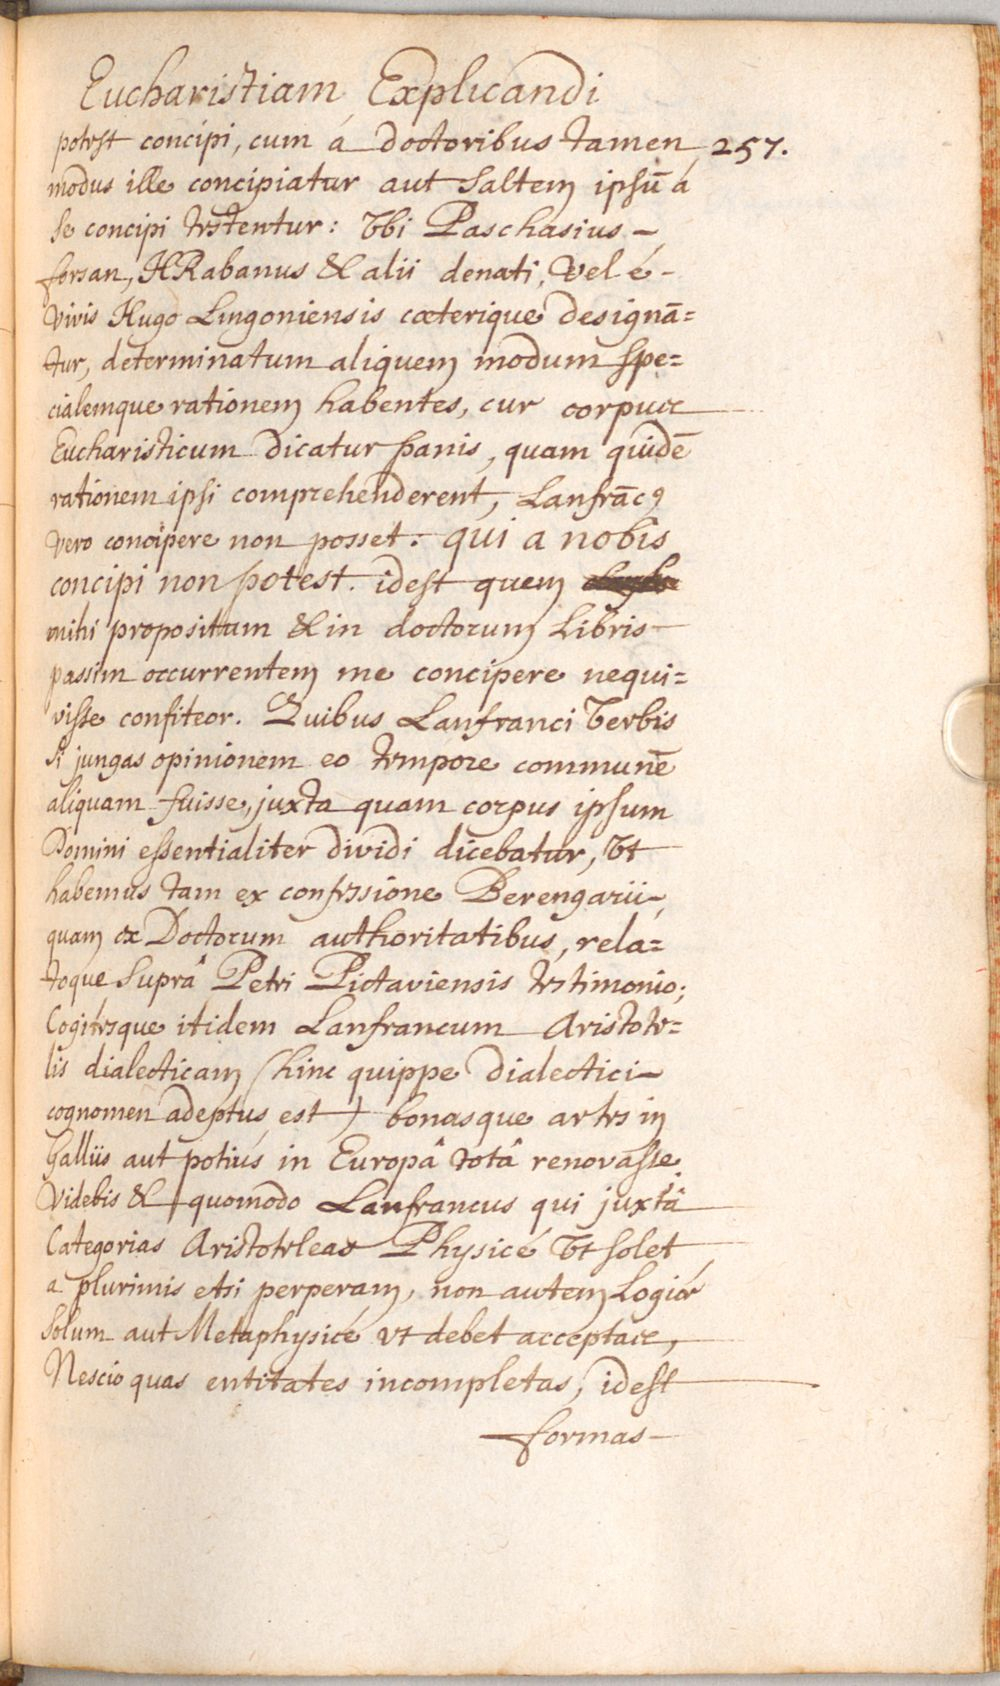 Eucharistiam Explicandi
potest concipi, cum á doctoribus tamen 257.
modus ille concipiatur aut saltem ipsū á
se concipi testentur: Vbi Paschasius
forsan, HRabanus & alii denati, Vel é
vivis Hugo Lingoniensis cœterique designā=
tur, determinatum aliquem modum spe=
cialemque rationem habentes, cur corpus
Eucharisticum dicatur panis, quam quidē
rationem ipsi comprehenderent, Lanfrācꝰ
vero concipere non posset: qui a nobis
concipi non potest. idest quem
mihi propositum & in doctorum Libris
passim occurrentem me concipere nequi=
visse confiteor. Quibus Lanfranci Verbis
si jungas opinionem eo tempore communē
aliquam fuisse, juxta quam corpus ipsum
Domini essentialiter dividi dicebatur, Vt
habemus tam ex confessione Berengarii,
quam ex Doctorum authoritatibus, rela=
toque suprâ Petri Pictaviensis testimonio;
Cogitesque itidem Lanfrancum Aristote=
lis dialecticam (hinc quippe Dialectici
cognomen adeptus est) bonasque artes in
Galliis aut potiús in Europâ totâ renovasse
Videbis & quomodo Lanfrancus qui juxtâ
Categorias Aristoteleas Physicé Vt solet
a plurimis etsi perperam, non autem Logicé
solum aut Metaphysicé vt debet acceptas,
Nescio quas entitates incompletas, idest
formas